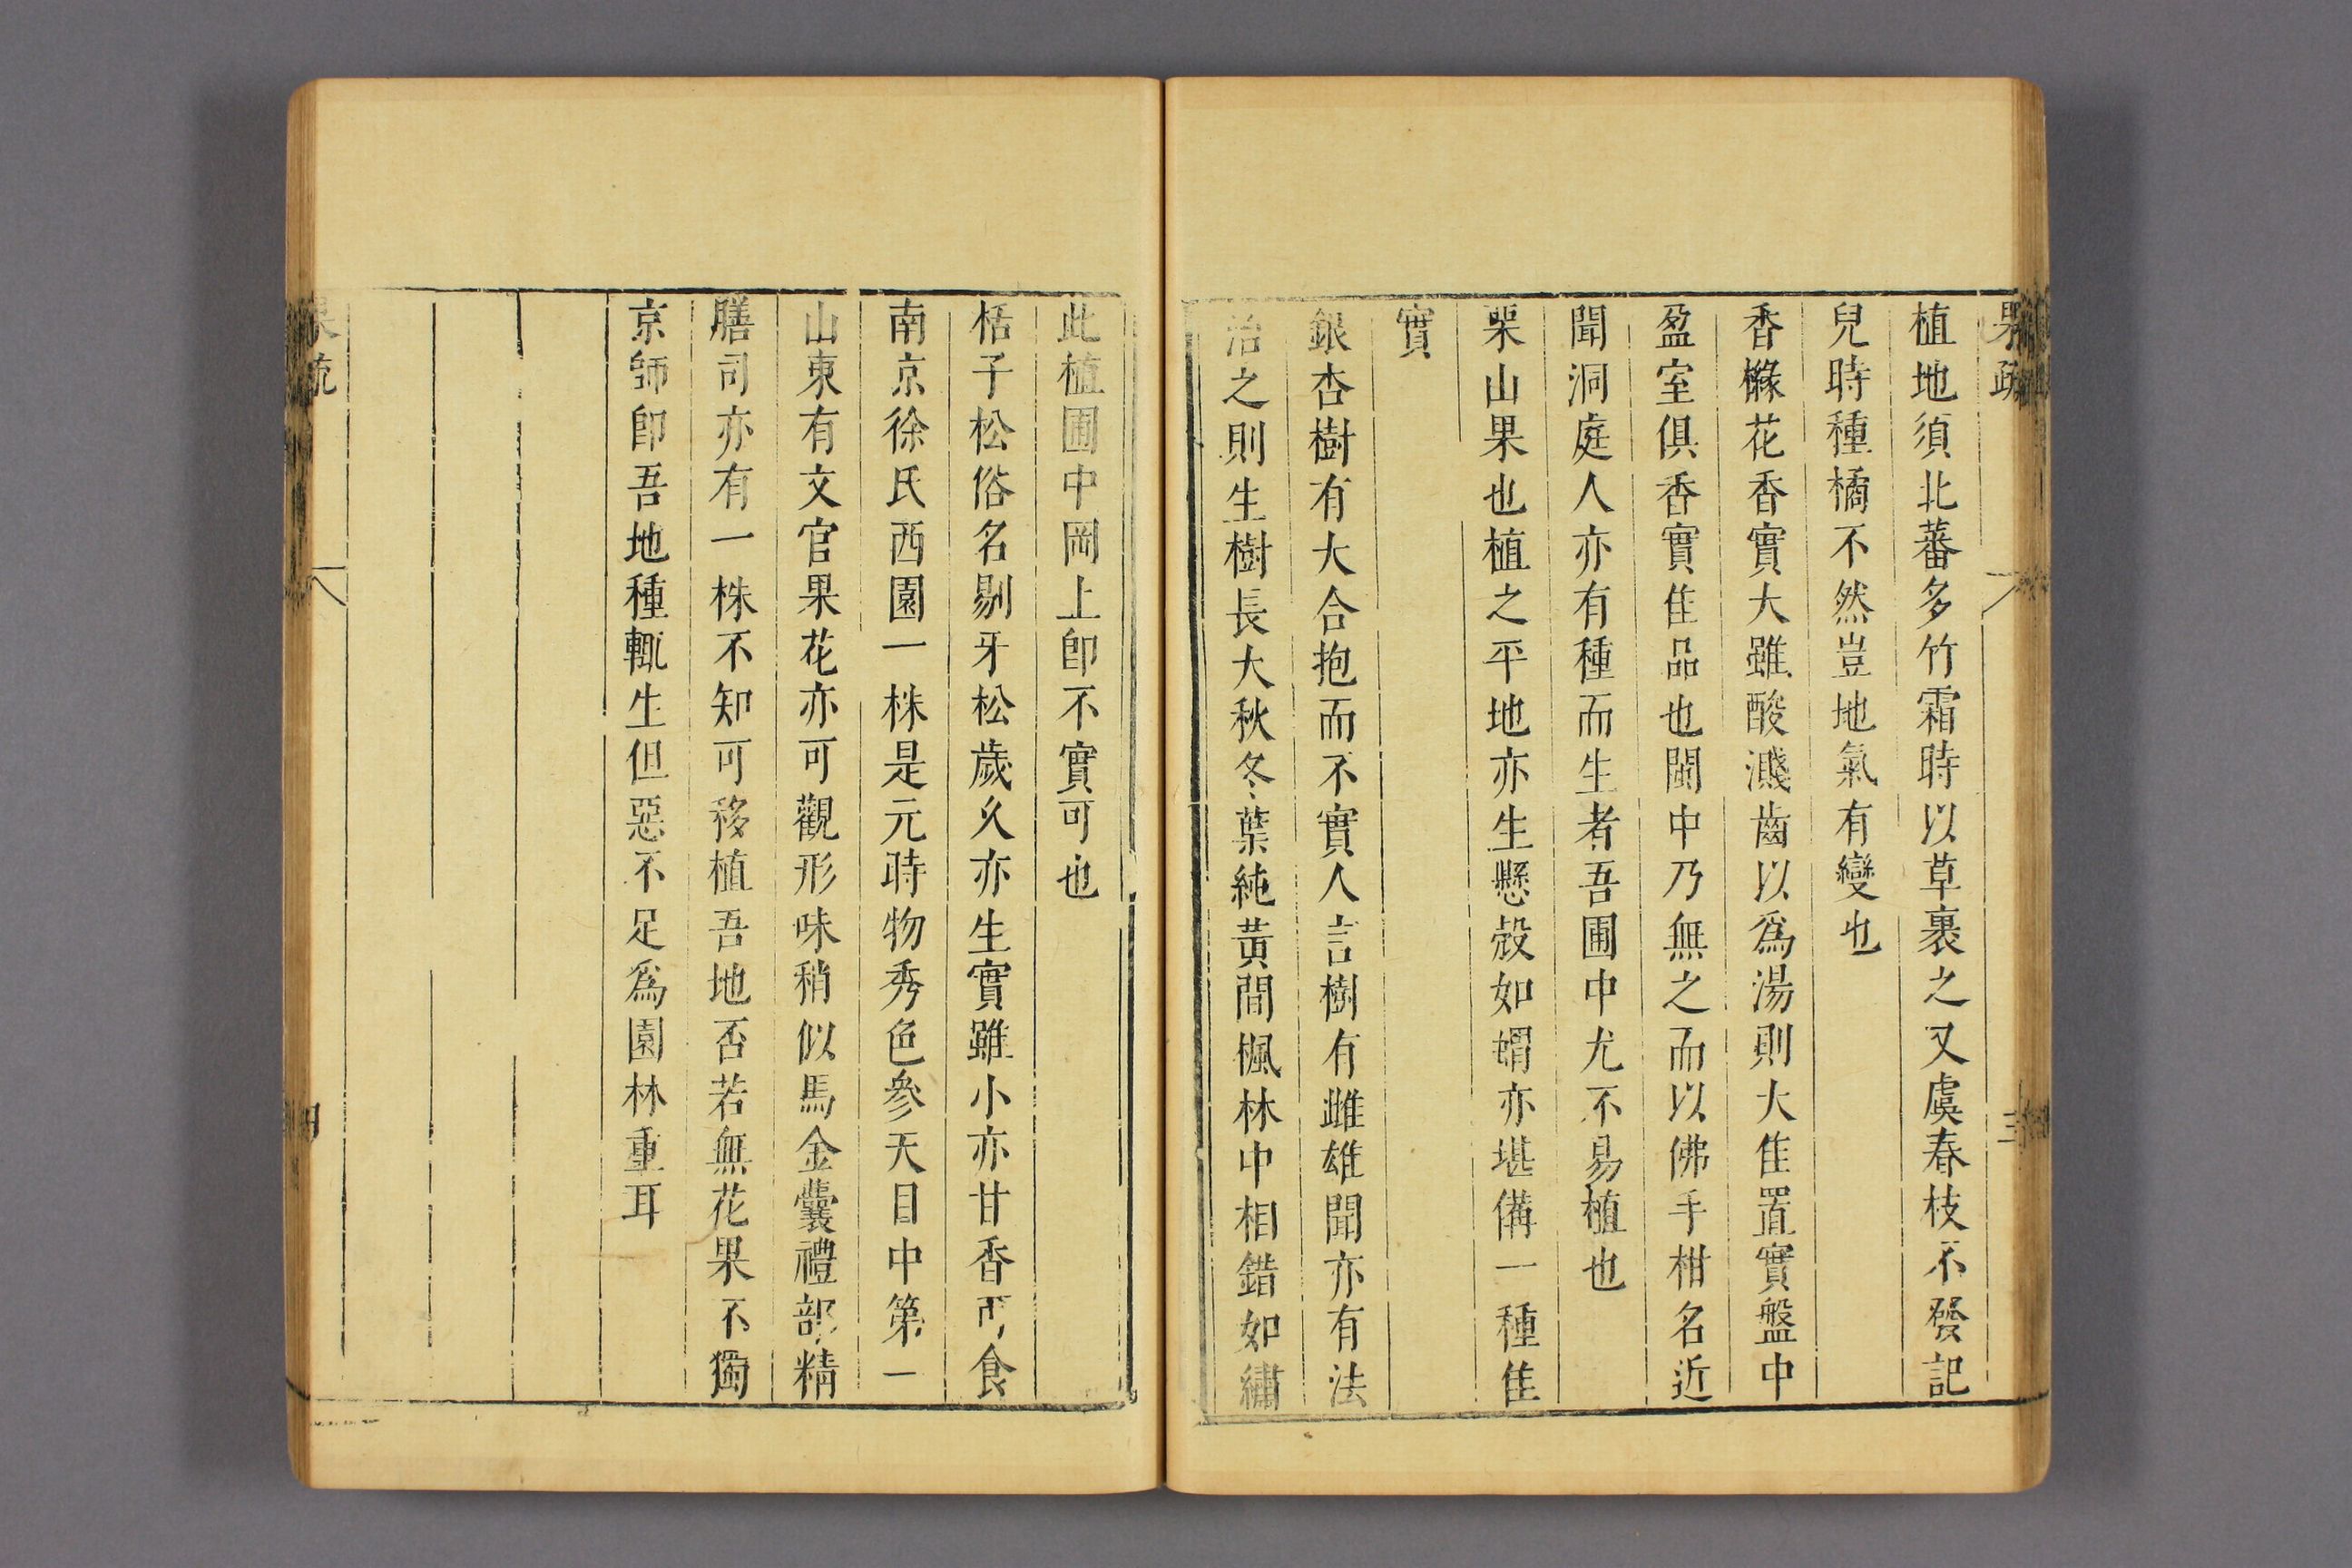 果疏
三
植地須北蕃多竹霜時以草裹之又虞春枝不發記
兒時種橘不然豈地氣有變也
香櫞花香實大雖酸濺齒以爲湯則大佳置實盤中
盈室俱香實佳品也閩中乃無之而以佛手柑名近
聞洞庭人亦有種而生者吾圃中尤不易植也
栗山果也植之平地亦生懸殻如蝟亦堪備一種佳
實
銀杏樹有大合抱而不實人言樹有雌雄聞亦有法
治之則生樹長大秋冬葉純黃間楓林中相錯如繡
此植圃中岡上卽不實可也
栝子松俗名剔牙松歲久亦生實雖小亦甘香可食
南京徐氏西園一株是元時物秀色參天目中第一
山東有文官果花亦可觀形味稍似馬金囊禮部精
膳司亦有一株不知可移植吾地否若無花果不獨
京師卽吾地種輒生但惡不足爲園林重耳
果疏
四